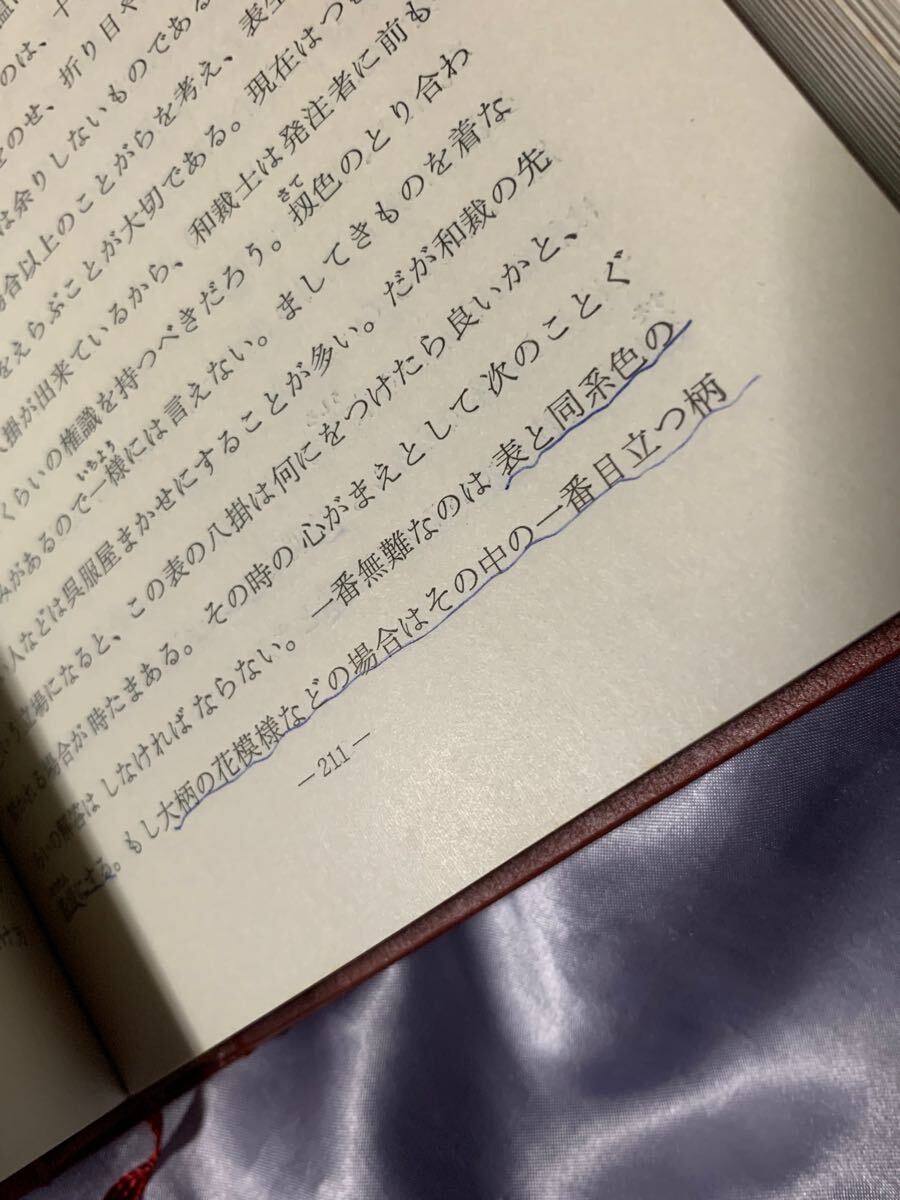 のは、
をのせ、折り目や
は余りしないものである
場合以上のことがらを考え、表生
をえらぶことが大切である。現在はつ
掛が出来ているから、和裁士は発注者に前も
くらいの権識を持つべきだろう。扨色のとり合わ
さて
みがあるので一様には言えない。ましてきものを着な
いちよう
人などは呉服屋まかせにすることが多い。だが和裁の先
いう立場になると、この表の八掛は何にをつけたら良いかと、
かれる場合が時たまある。その時の心がまえとして次のことぐ
らいの解答はしなければならない。一番無難なのは表と同系色の
る。もし大柄の花模様などの場合はその中の一番目立つ柄
—211—